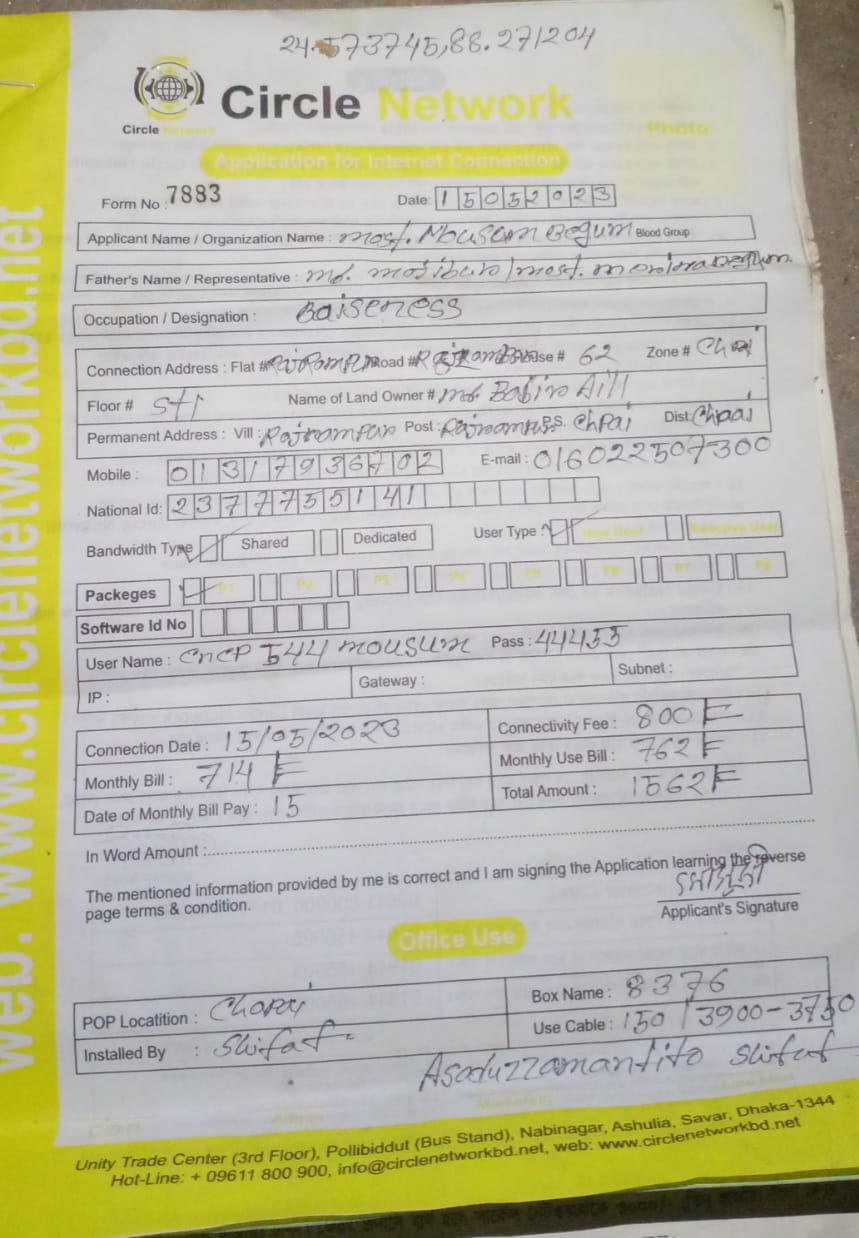 24.573745,88.271204
Circle Network
Circle Network
Photo
Application for Internet Connection
Form No : 7883 Date: 15052023
Applicant Name / Organization Name : most. Mousum Begum Blood Group
Father's Name / Representative : md. mojibur/most.
Occupation / Designation : Baiseness
Connection Address : Flat # Road # House # 62 Zone #
Floor # Name of Land Owner # md.
Permanent Address : Vill : Rajrampur Post : Rajrampur P.S. ChPai Dist: Chpai
Mobile : 01317936702 E-mail : 016022507300
National Id: 2377755141
Bandwidth Type Shared Dedicated User Type : New User Reactive User
Packeges P1 P2 P3 P4 P5 P6 P7 P8
Software Id No
User Name : CNCP 544 mousum Pass : 44455
IP : Gateway : Subnet :
Connection Date : 15/05/2023 Connectivity Fee : 800
Monthly Bill : 714 Monthly Use Bill : 762
Date of Monthly Bill Pay : 15 Total Amount : 1562
In Word Amount :
The mentioned information provided by me is correct and I am signing the Application learning the reverse
page terms & condition.
Applicant's Signature
Office Use
POP Locatition : Box Name : 8376
Installed By : Shifat Use Cable : 150 / 3900-3750
Asaduzzamantito Shifat
Unity Trade Center (3rd Floor), Pollibiddut (Bus Stand), Nabinagar, Ashulia, Savar, Dhaka-1344
Hot-Line: + 09611 800 900, info@circlenetworkbd.net, web: www.circlenetworkbd.net
web: www.circlenetworkbd.net